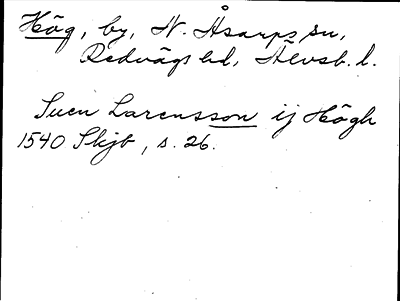 Hög, by, N. Åsarps sn,
Redvägs hd, Älvsb. l.
Suen Larensson ij Högh
1540 Skjb, s. 26.